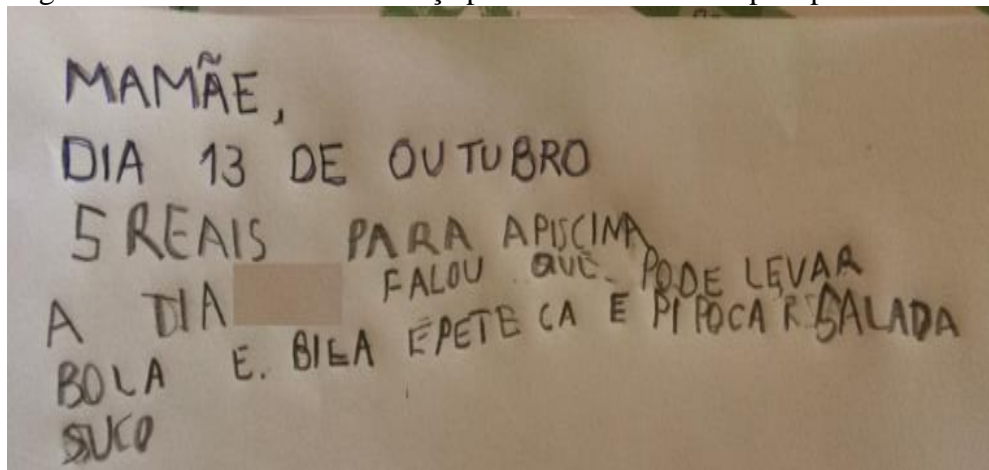 MAMÃE,
DIA 13 DE OUTUBRO
5 REAIS PARA APISCINA
A DIA FALOU QUE PODE LEVAR
BOLA E. BILA E PETECA E PIPOCA SALADA
SUCO